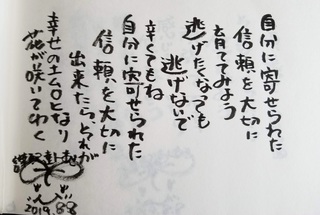 自分に寄せられた
信頼を大切に
育ててみよう
逃げたくなっても
逃げないで
辛くてもね
自分に寄せられた
信頼を大切に
出来たら、それが
幸せの土台となり
花が咲いてゆく
2019.8.8